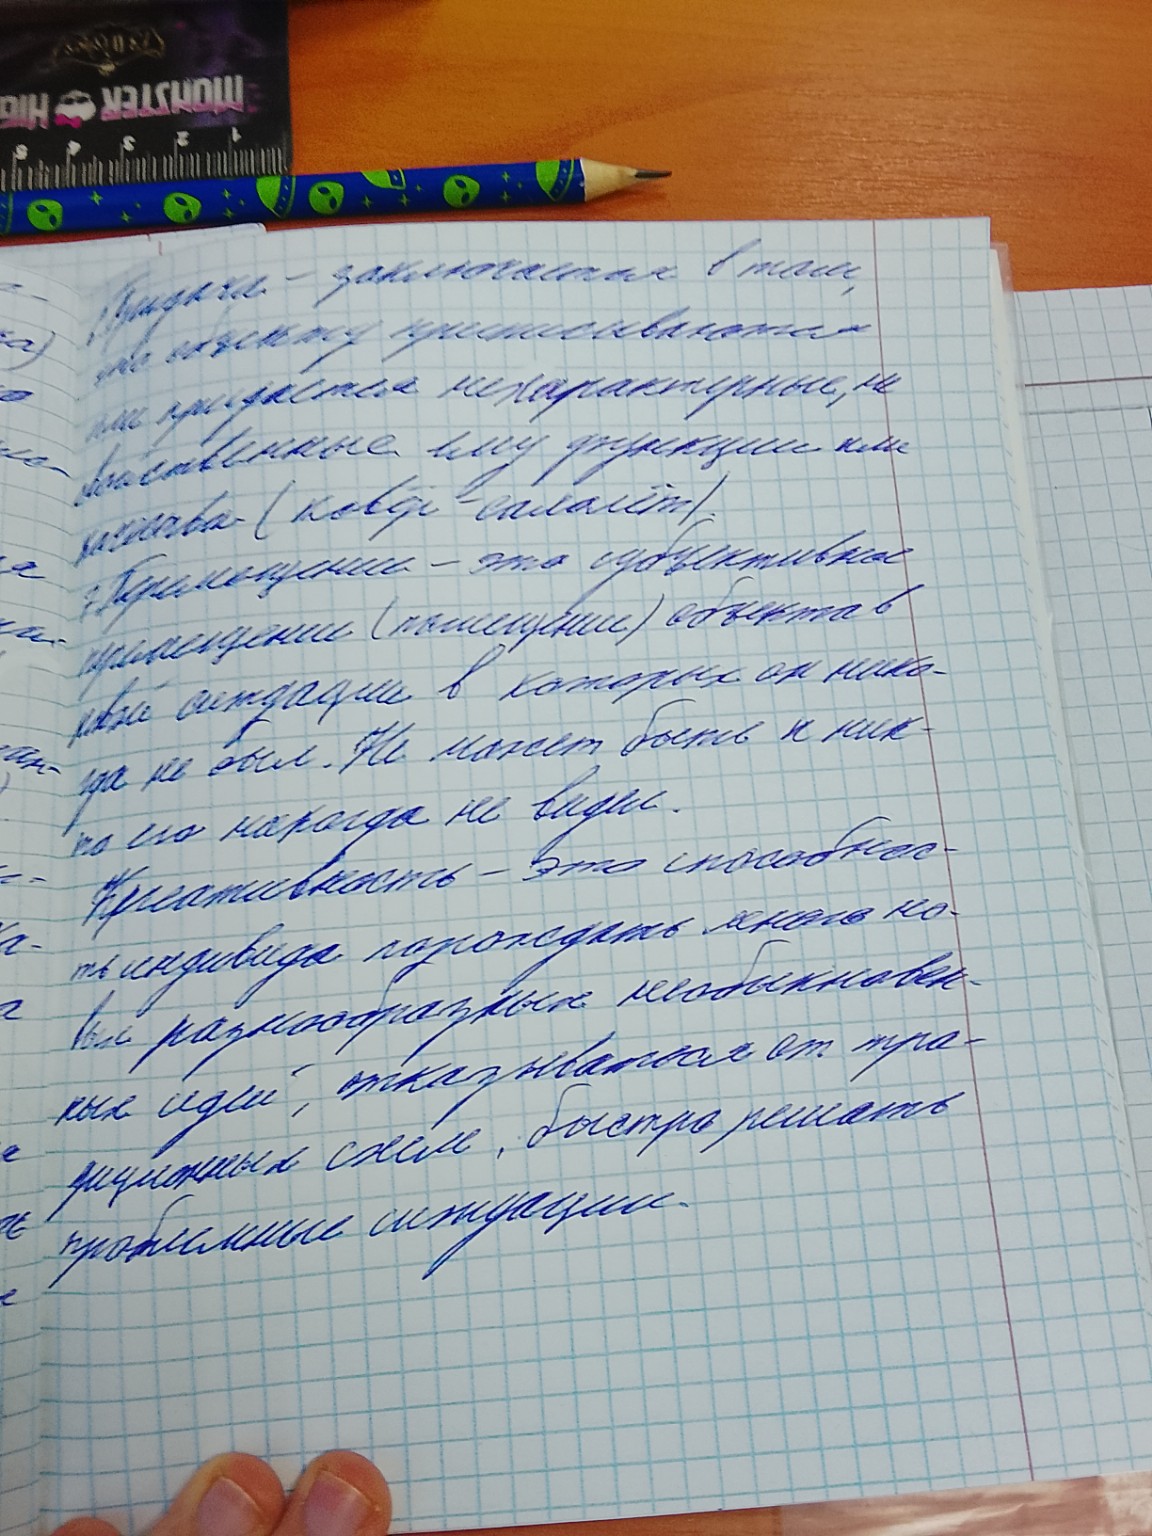 MONSTER HIGH
1 2 3 4 5
Придача - заключается в том,
что объекту приписываются
или придается нехарактерные, не
свойственные ему функции или
качества (ковёр-самолёт).
7. Перемещение - это субъективное
перемещение (помещение) объекта в
новой ситуации в которых он нико-
гда не был. Не может быть и ник-
то его никогда не видел.
Креативность - это способнос-
ть индивида порождать много но-
вых разнообразных необыкновен-
ных идей, отказываться от тра-
диционных схем, быстро решать
проблемные ситуации.